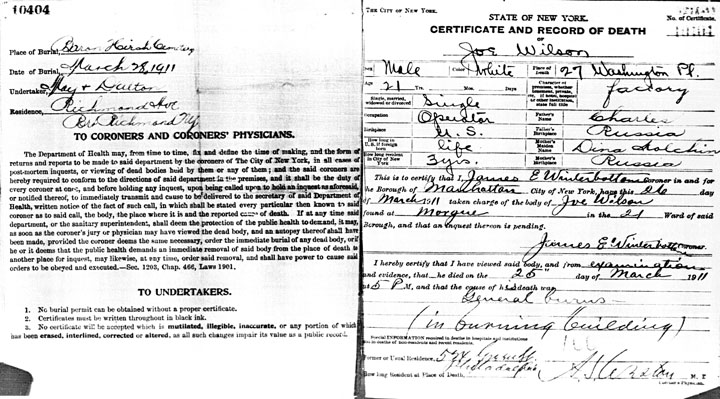 10404
Place of Burial, Baron Hirsh Cemetery
Date of Burial, March 28, 1911
Undertaker, May & Dalton
Residence, Richmond Ave
Richmond Ny.
TO CORONERS AND CORONERS' PHYSICIANS.
The Department of Health may, from time to time, fix and define the time of making, and the form of
returns and reports to be made to said department by the coroners of The City of New York, in all cases of
post-mortem inquests, or viewing of dead bodies held by them or any of them; and the said coroners are
hereby required to conform to the directions of said department in the premises, and it shall be the duty
of every coroner at once, and before holding any inquest, upon being called upon to hold an inquest as aforesaid,
or notified thereof, to immediately transmit and cause to be delivered to the secretary of said Department of
Health, written notice of the fact of such call, in which shall be stated every particular then known to said
coroner as to said call, the body, the place where it is and the reported cause of death. If at any time said
department, or the sanitary superintendent, shall deem the protection of the public health to demand, it may,
as soon as the coroner's jury or physician may have viewed the dead body, and an autopsy thereof shall have
been made, provided the coroner deems the same necessary, order the immediate burial of any dead body, or if
he or it deems that the public health demands an immediate removal of said body from the place of death to
another place for inquest, may likewise, at any time, order said removal, and shall have power to cause said
orders to be obeyed and executed.—Sec. 1203, Chap. 466, Laws 1901.
TO UNDERTAKERS.
1. No burial permit can be obtained without a proper certificate.
2. Certificates must be written throughout in black ink.
3. No certificate will be accepted which is mutilated, illegible, inaccurate, or any portion of which
has been erased, interlined, corrected or altered, as all such changes impair its value as a public record.
THE CITY OF NEW YORK.
STATE OF NEW YORK.
No. of Certificate.
CERTIFICATE AND RECORD OF DEATH
OF Joe Wilson
Sex Male Color White Place of Death 27 Washington Pl.
Age 21 Yrs. Mos. Days Character of premises, whether tenement, private, etc. if hotel, hospital or other institution, state full title factory
Single, married, widowed or divorced Single
Occupation Operator Father's Name Charles
Birthplace U.S. Father's Birthplace Russia
How long in U.S. if foreign born life Mother's Name Dina
How long resident in City of New York 3 yrs. Mother's Birthplace Russia
This is to certify that I, James E Winterbottom Coroner in and for
the Borough of Manhattan City of New York, have this 26 day
of March 1911 taken charge of the body of Joe Wilson
found at Morgue in the 21 Ward of said
Borough, and that an inquest thereon is pending.
James E. Winterbottom Coroner.
I hereby certify that I have viewed said body, and from examination
and evidence, that he died on the 25 day of March 1911
at 5 P M, and that the cause of his death was
General burns
(in burning building)
Special INFORMATION required in deaths in hospitals and institutions
and in deaths of non-residents and recent residents.
Former or Usual Residence, Philadelphia
How long Resident at Place of Death, M. D.
Coroner's Physician.